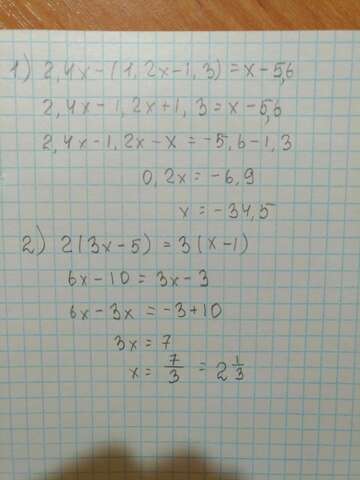 1) 2,4x-(1,2x-1,3)=x-5,6
2,4x-1,2x+1,3=x-5,6
2,4x-1,2x-x=-5,6-1,3
0,2x=-6,9
x=-34,5
2) 2(3x-5)=3(x-1)
6x-10=3x-3
6x-3x=-3+10
3x=7
x=7/3=2 1/3